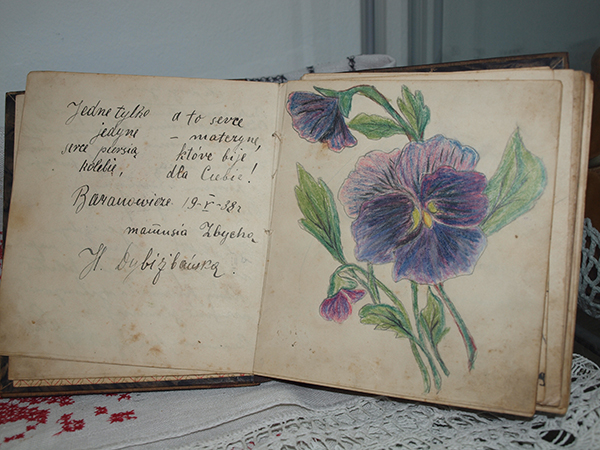 Jedne tylko
jedyne
serce piersią
kolebie,
a to serce
– matczyne,
które bije
dla Ciebie!
Baranowicze 19-V-38r.
mamusia Zbycha
H. Dybizbańska.